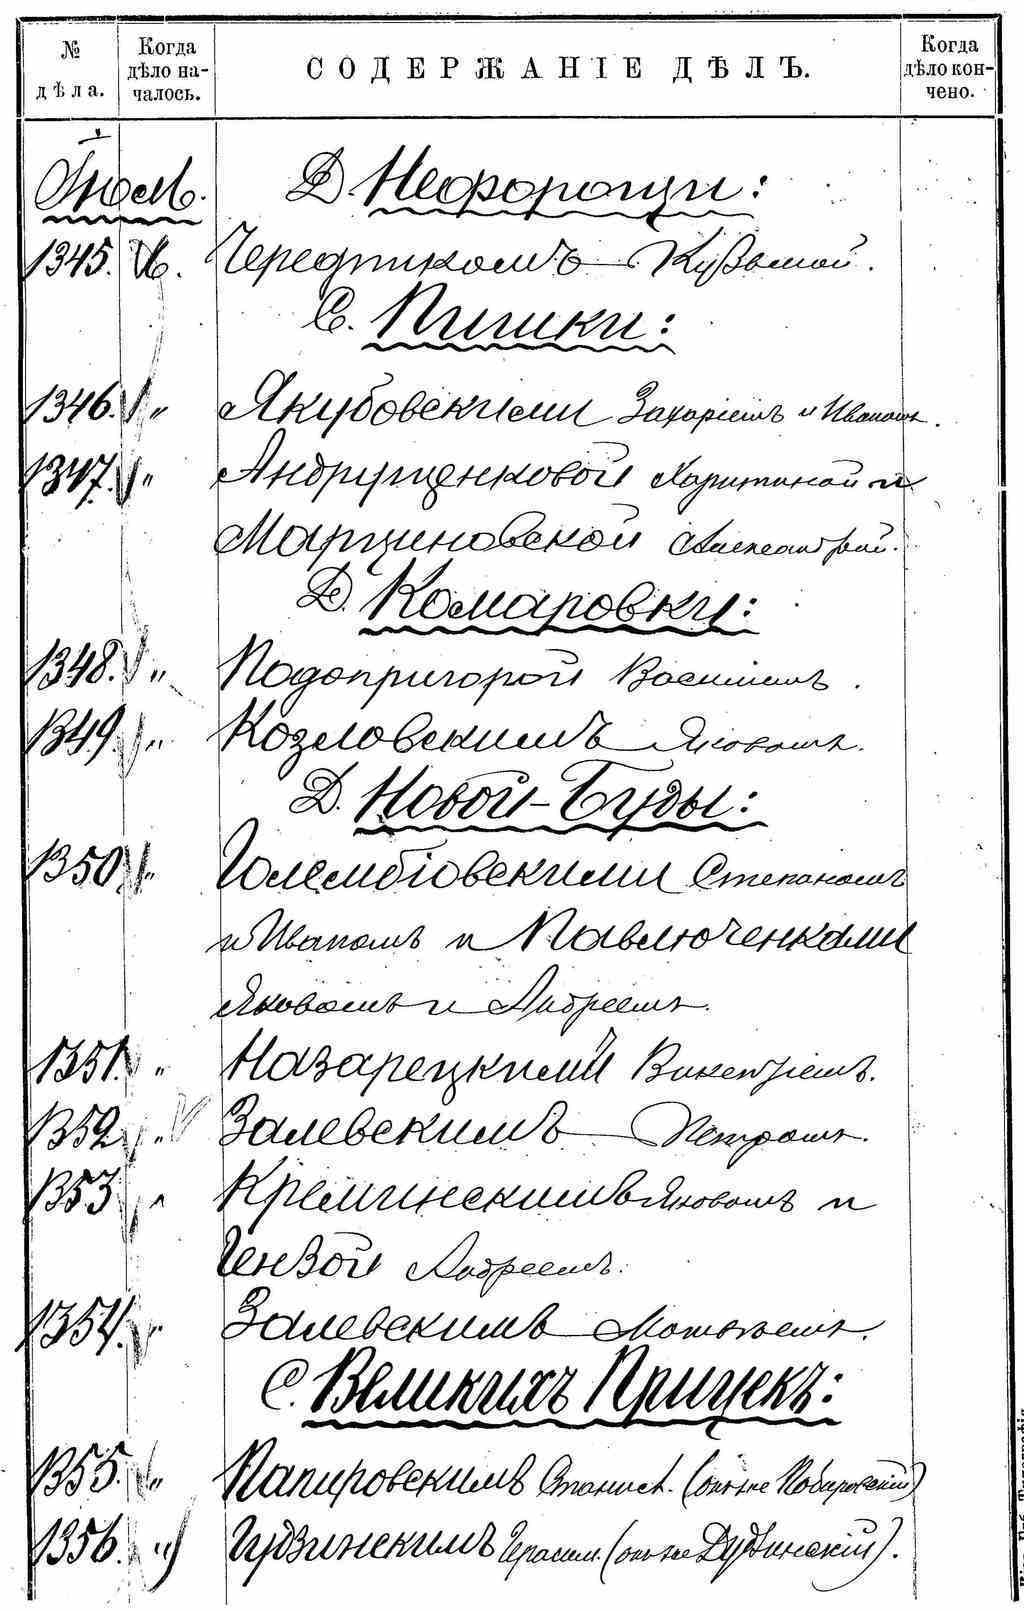 № дѣла.
Когда дѣло началось.
СОДЕРЖАНІЕ ДѢЛЪ.
Когда дѣло кончено.
Д. Нефорощи:
1345. Чередникомъ Кузьмой.
С. Пишки:
1346. " Якубовскими Захаріемъ и Иваномъ.
1347. " Андрущенковой Харитиной и
Марциновской Александрой.
Д. Комаровки:
1348. " Подопригорой Василіемъ.
1349. " Козловскимъ Яковомъ.
Д. Новой-Буды:
1350. " Голембіовскими Степаномъ
и Иваномъ и Павлюченками
Яковомъ и Андреемъ.
1351. " Назарецкимъ Викентіемъ.
1352. " Залевскимъ Петромъ.
1353. " Кремнискимъ Яковомъ и
Гензой Андреемъ.
1354. " Залевскимъ Матвѣемъ.
С. Великихъ Прицекъ:
1355. " Папировскимъ Станисл. (онъ же Побировскій)
1356. " Гудзинскимъ Герасим. (онъ же Дудзинскій).